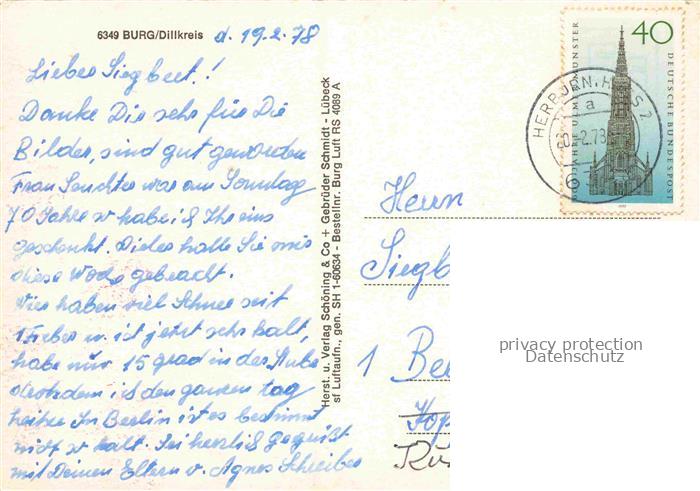 6349 BURG/Dillkreis
d. 19.2.78
Lieber Siegbert!
Danke Dir sehr für Die
Bilder, sind gut geworden
Frau Leuchter war am Sonntag
70 Jahre u habe ich Ihr eins
geschenkt. Dieter hatte Sie mir
diese Woche gebracht.
Wir haben viel Schnee seit
1 Feber u. ist jetzt sehr kalt,
habe nur 15 grad in der Stube
trotzdem i den ganzen tag
heitze In Berlin ist es bestimmt
nicht so kalt. Sei herzlich gegrüßt
mit Deinen Eltern v. Agnes Schreiber
Herst. u. Verlag Schöning & Co + Gebrüder Schmidt - Lübeck
sf Luftaufn., gen. SH 1-60634 - Bestellnr.- Burg Luft RS 4089 A
40
600 JAHRE ULMER MÜNSTER
DEUTSCHE BUNDESPOST
1977
HERBORN, HESS 2
a
6
Herrn
Siegb
1 Be
privacy protection
Datenschutz